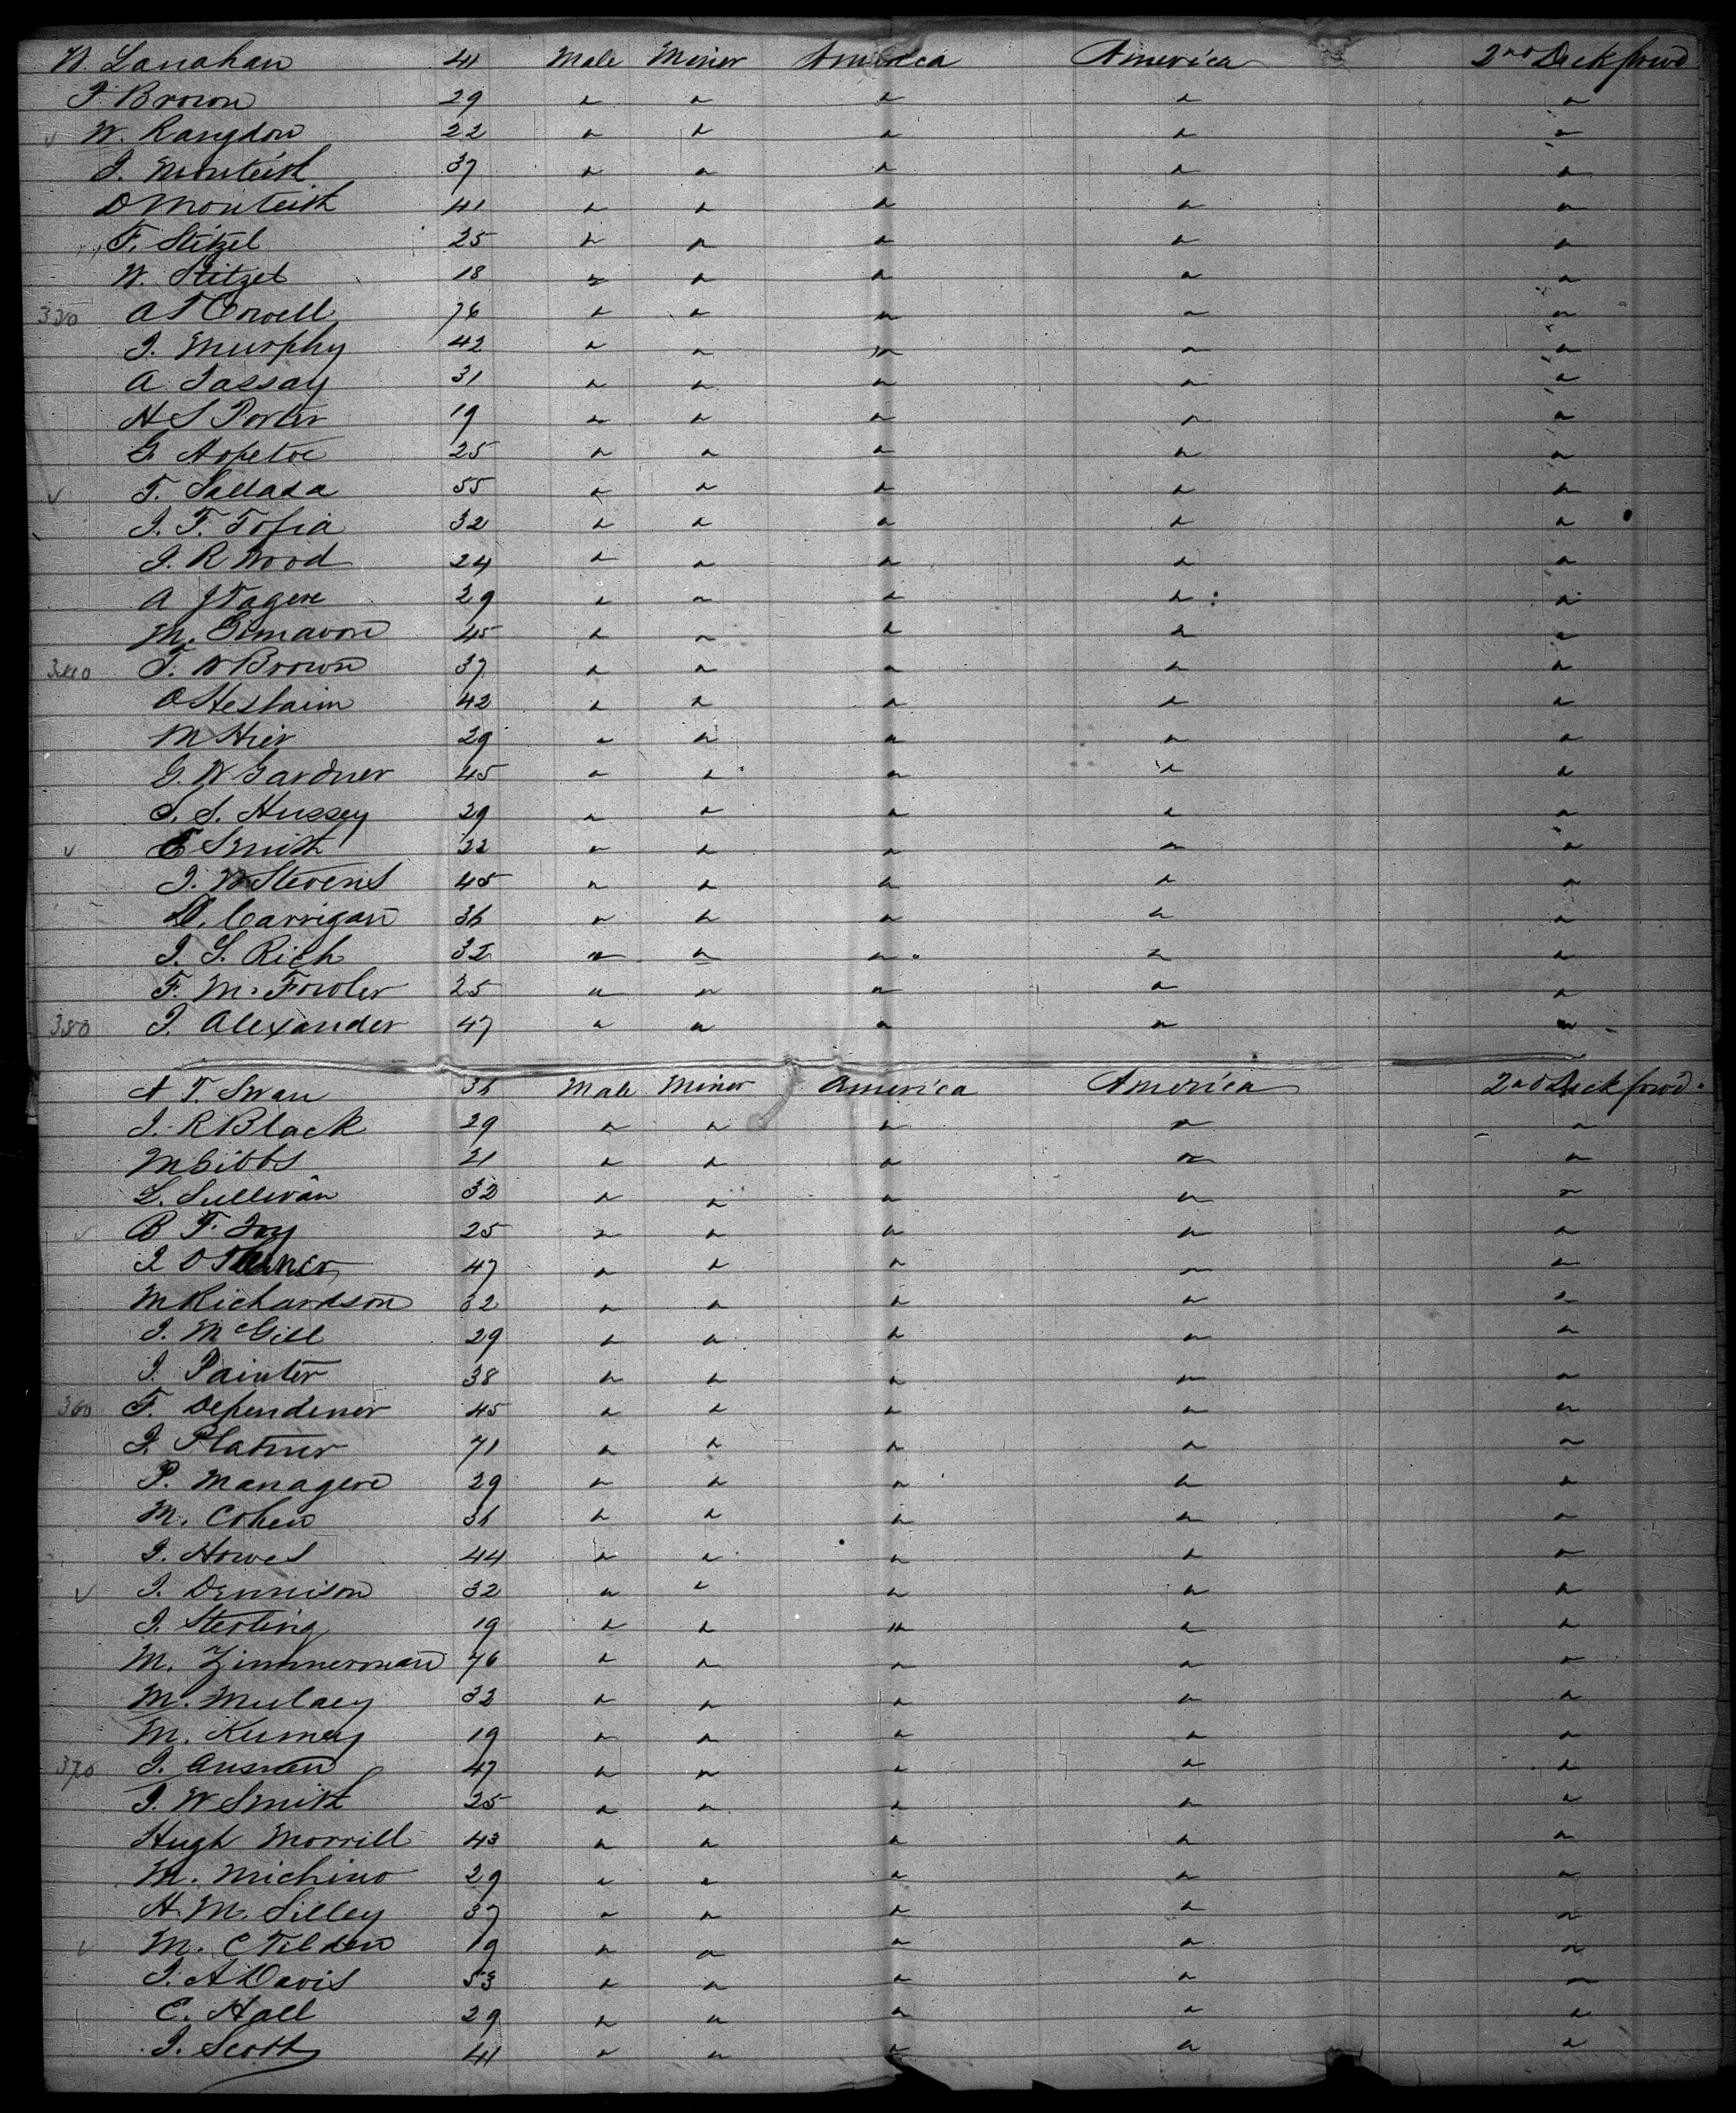 W. Lanahan 41 Male Miner America America 2nd Deck forwd
J. Brown 29 " " " " "
W. Rangdon 22 " " " " "
J. Monteith 37 " " " " "
D Monteith 41 " " " " "
F. Stitzel 25 " " " " "
W. Stitzel 18 " " " " "
330 A T Orwell 76 " " " " "
J. Murphy 42 " " " " "
A Tassay 31 " " " " "
H S Porter 19 " " " " "
G Hopetoe 25 " " " " "
T. Sallada 55 " " " " "
J. F. Tofia 32 " " " " "
J. R Wood 24 " " " " "
A J Tagere 29 " " " " "
M. Simavon 45 " " " " "
340 T. W Brown 37 " " " " "
O Heslaim 42 " " " " "
M Hier 29 " " " " "
G. W Gardner 45 " " " " "
S. S. Hussey 29 " " " " "
E Smith 32 " " " " "
J. W Stevens 45 " " " " "
D. Carrigan 36 " " " " "
J. S. Rich 32 " " " " "
F. M. Fowler 25 " " " " "
350 J. Alexander 47 " " " " "
A T. Swan 36 Male Miner America America 2nd Deck forwd.
J. R Black 29 " " " " "
M Gibbs 21 " " " " "
L. Sullivan 32 " " " " "
B F. Joy 25 " " " " "
J O 47 " " " " "
M Richardson 32 " " " " "
J. McGill 29 " " " " "
J. Painter 38 " " " " "
360 F. Dependener 45 " " " " "
J. Platner 71 " " " " "
P. Managere 29 " " " " "
M. Cohen 36 " " " " "
J. Howes 44 " " " " "
J. Dennison 32 " " " " "
J. Sterling 19 " " " " "
M. Zimmerman 76 " " " " "
M. Mulacy 32 " " " " "
M. Kumey 19 " " " " "
370 J. Ausman 47 " " " " "
J. W Smith 25 " " " " "
Hugh Morrill 43 " " " " "
M. Michino 29 " " " " "
H. M. Silley 37 " " " " "
M. C Tilden 19 " " " " "
J. A Davis 53 " " " " "
C. Hall 29 " " " " "
J. Scott 41 " " " " "